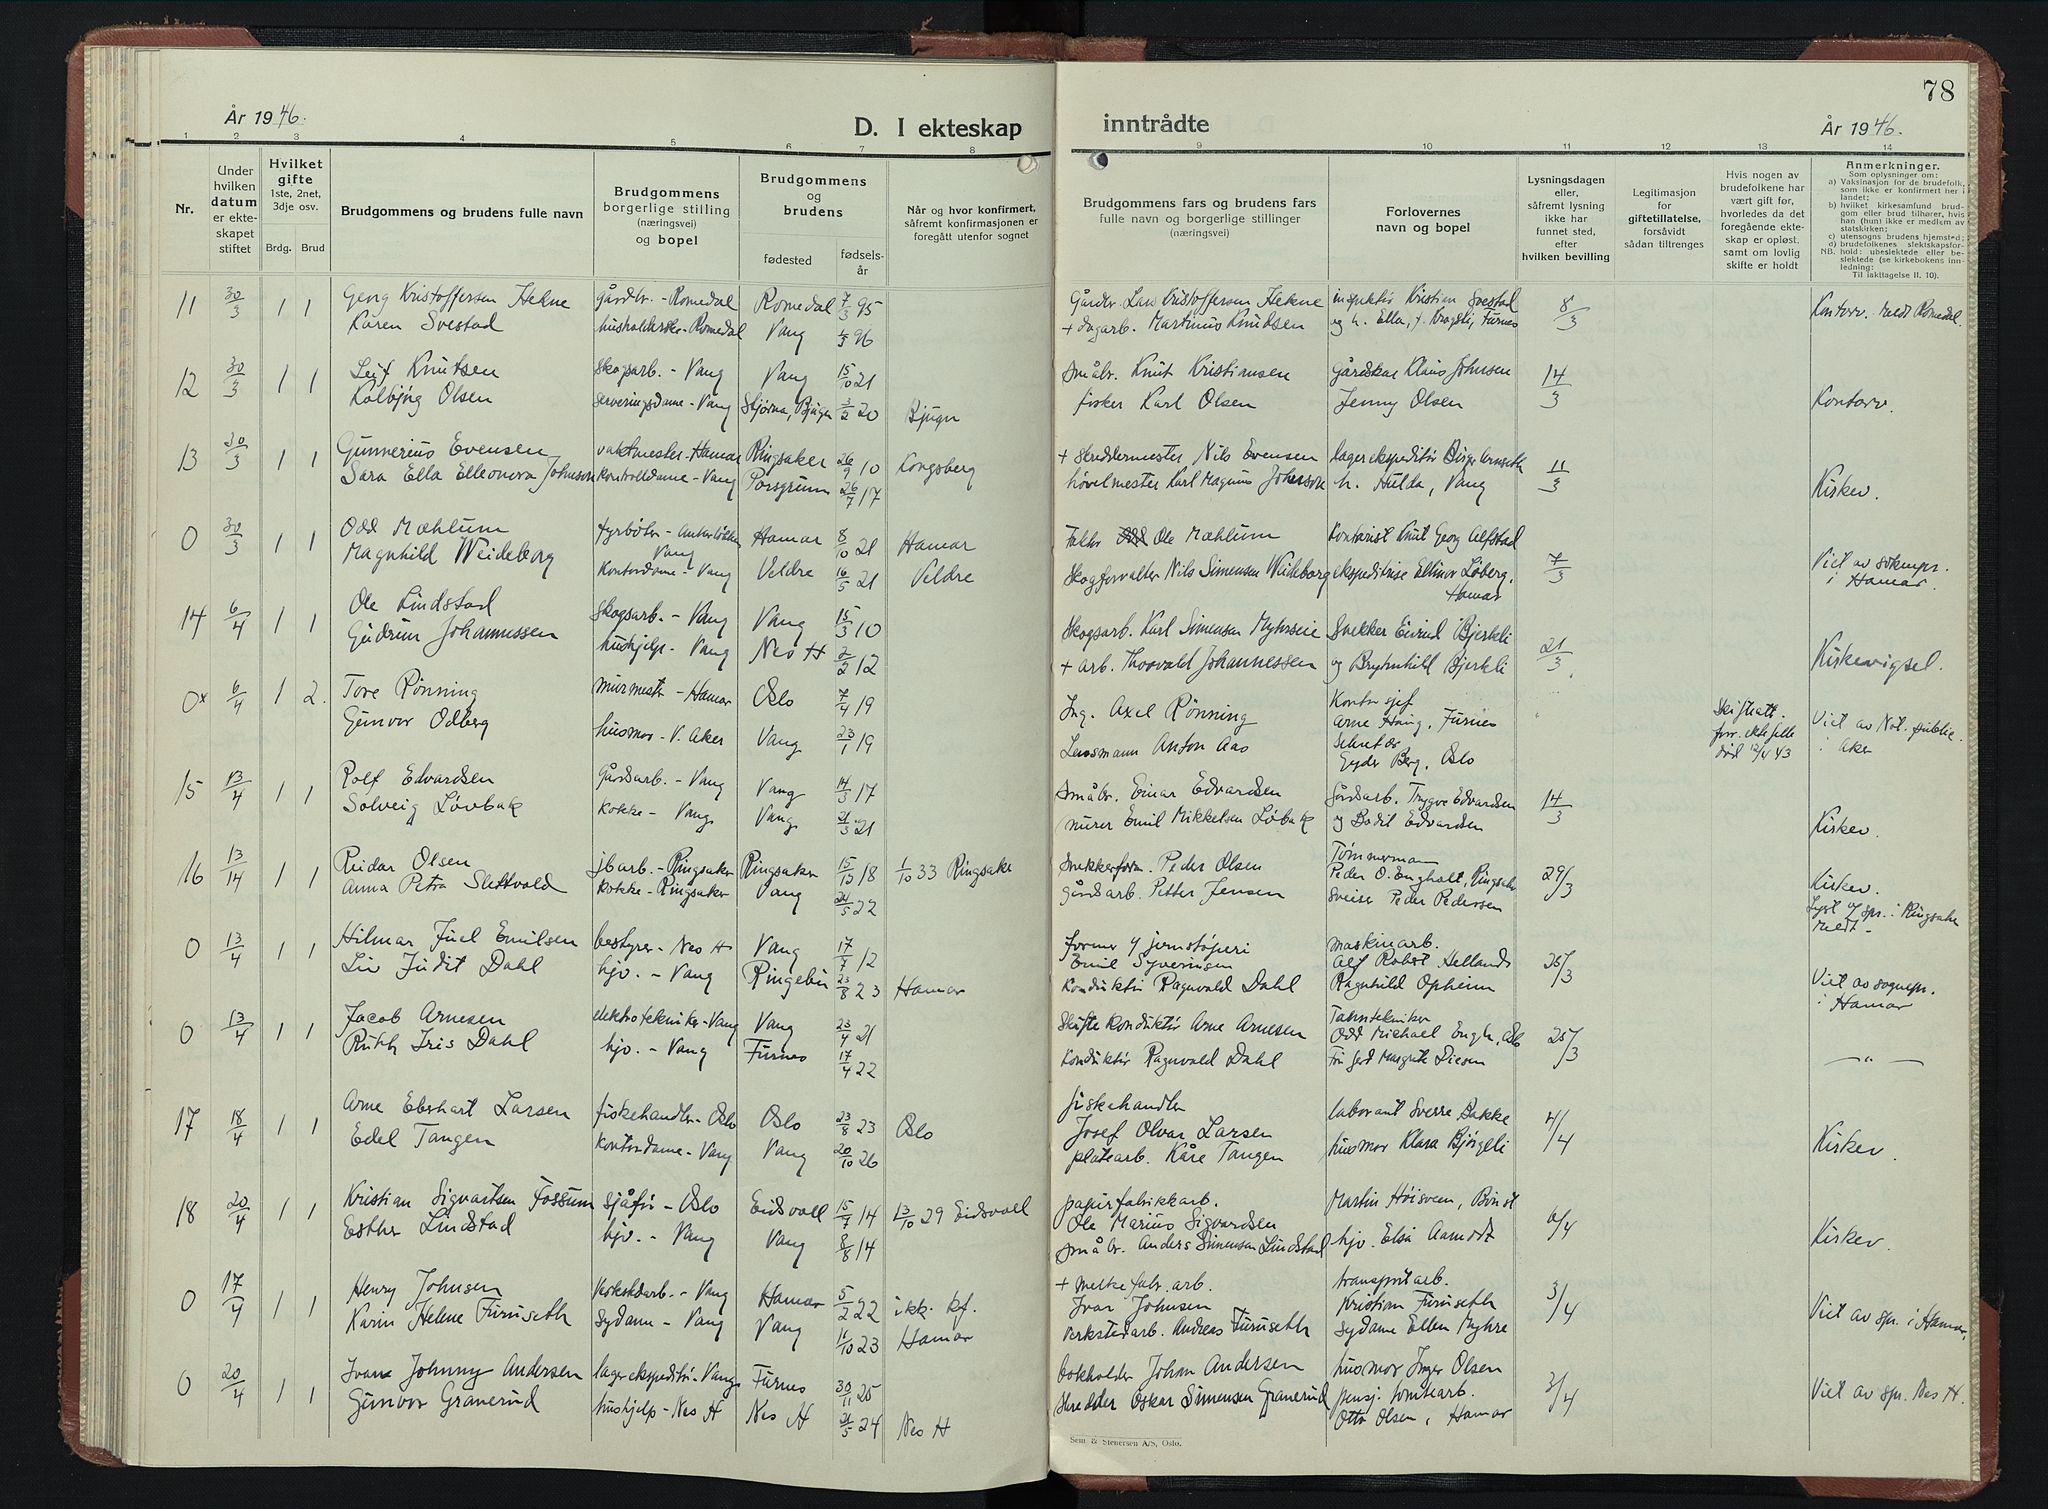 78
År 1946.
D. I ekteskap inntrådte
År 1946.
1 2 3 4 5 6 7 8 9 10 11 12 13 14
Nr.
Under hvilken datum er ekteskapet stiftet
Hvilket gifte 1ste, 2net, 3dje osv.
Brdg. Brud
Brudgommens og brudens fulle navn
Brudgommens borgerlige stilling (næringsvei) og bopel
Brudgommens og brudens
fødested
fødselsår
Når og hvor konfirmert, såfremt konfirmasjonen er foregått utenfor sognet
Brudgommens fars og brudens fars fulle navn og borgerlige stillinger (næringsvei)
Forlovernes navn og bopel
Lysningsdagen eller, såfremt lysning ikke har funnet sted, efter hvilken bevilling
Legitimasjon for giftetillatelse, forsåvidt sådan tiltrenges
Hvis nogen av brudefolkene har vært gift før, hvorledes da det foregående ekteskap er opløst, samt om lovlig skifte er holdt
Anmerkninger.
Som oplysninger om:
a) Vaksinasjon for de brudefolk, som ikke er konfirmert her i landet;
b) hvilket kirkesamfund brudgom eller brud tilhører, hvis han (hun) ikke er medlem av statskirken;
c) utensogns brudens hjemsted;
d) brudefolkenes slektskapsforhold: ubeslektede eller beslektede (se kirkebokens innledning:
NB. Til iakttagelse II. 10).
11 30/3 1 1 Georg Kristoffersen Hekne gårdbr. - Romedal Romedal 7/3 95 Gårdbr. Lars Kristoffersen Hekne inspektør Kristian Svestad 8/3 Kontorv. meldt Romedal.
Karen Svestad Romedal Vang 96 + dagarb. Martinus Knudsen og h. Ella, Furnes
12 30/3 1 1 Leif Knutsen Skogsarb. - Vang Vang 15/10 21 Småbr. Knut Kristiansen Gårdskar Klaus Johnsen 14/3 Kontorv.
Kolbjørg Olsen Serveringsdame - Vang Stjørna, Bjugn 3/2 20 Bjugn fisker Karl Olsen Jenny Olsen
13 30/3 1 1 Gunnerius Evensen vaktmester - Hamar Ringsaker 26/9 10 Kongsberg + Skreddermester Nils Evensen lagerekspeditør Birger Arnseth 11/3 Kirkev.
Sara Ella Elleonora Johnson Kontrolldame - Vang Porsgrunn 26/7 17 høvelmester Karl Magnus Johnson h. Hulda, Vang
0 30/3 1 1 Odd Mæhlum fyrbøter - Vang Hamar 8/10 21 Hamar Faktor Ole Mæhlum Kontorist Knut Georg Alfstad 7/3 Viet av sokenpr. i Hamar.
Magnhild Weideborg Kontordame - Vang Veldre 16/5 21 Veldre Skogforvalter Nils Simensen Weideborg ekspeditrise Ellinor Løberg, Hamar
14 6/4 1 1 Ole Lindstad Skogsarb. - Vang Vang 15/3 10 Skogsarb. Karl Simensen Myhrseie Snekker Eivind Bjerkli 21/3 Kirkevigsel.
Gudrun Johannessen hushjelp - Vang Nes H 2/2 12 + arb. Thorvald Johannessen og Brynhild Bjerkli
0x 6/4 1 2. Tore Rønning murmester - Hamar Oslo 7/4 19 Ing. Axel Rønning Kontorsjef Arne Haug, Furnes Skifteatt. forr. ektefelle død 12/4 43 Viet av Not. public. i Aker
Gunvor Odberg husmor - V. Aker Vang 23/1 19 Lensmann Anton Aas Sekretær Eyder Berg, Oslo
15 13/4 1 1 Rolf Edvardsen Gårdsarb. - Vang Vang 14/3 17 Småbr. Einar Edvardsen Gårdsarb. Trygve Edvardsen 14/3 Kirkev.
Solveig Løvbak Kokke - Vang Vang 21/3 21 murer Emil Mikkelsen Løvbak og Bodil Edvardsen
16 13/14 1 1 Reidar Olsen jbarb. - Ringsaker Ringsaker 15/12 18 1/10 33 Ringsaker Snekkerform. Peder Olsen Tømmermann Peder O. Engholt, Ringsaker 29/3 Kirkev.
Anna Petra Slettvold Kokke - Ringsaker Vang 24/5 22 Gårdsarb. Petter Jensen Sveiser Peder Pedersen Lyst af spr. i Ringsaker Meldt -
0 13/4 1 1 Hilmar Juel Emilsen bestyrer - Nes H Vang 17/7 12 former v/ jernstøperi Emil Syverinsen maskinarb. Alf Robert Hellands 25/3 Viet av sognepr. i Hamar
Liv Judit Dahl hjv. - Vang Ringebu 23/8 23 Hamar Konduktør Ragnvald Dahl Ragnhild Opheim
0 13/4 1 1 Jacob Arnesen elektrotekniker - Vang Vang 23/4 21 Skiftekonduktør Arne Arnesen Tanntekniker Odd Michael Engh, Oslo 25/3 — " —
Ruth Iris Dahl hjv. - Vang Furnes 17/4 22 Konduktør Ragnvald Dahl Frk Gerd Margrete Diesen
17 18/4 1 1 Arne Eberhart Larsen fiskehandler - Oslo Oslo 23/8 23 Oslo fiskehandler Josef Olvar Larsen laborant Sverre Bakke 4/4 Kirkev.
Edel Tangen Kontordame - Vang Vang 20/10 26 platearb. Kåre Tangen husmor Klara Bjørgeli
18 20/4 1 1 Kristian Sigvartsen Fossum sjåfør - Oslo Eidsvoll 15/7 14 13/10 29 Eidsvoll papirfabrikkarb. Ole Marius Sigvardsen Martin Høisveen 6/4 Kirkev.
Esther Lindstad hjv. - Vang Vang 8/8 14 Småbr. Anders Simensen Lindstad hjv. Elsa Aamodt
0 17/4 1 1 Henry Johnsen Verkstedarb. - Vang Hamar 5/2 22 ikk. kf. + Melkefabr.arb. Ivar Johnsen transportarb. Kristian Furuseth 3/4 Viet av spr. i Hamar,
Karin Helene Furuseth Sydame - Vang Vang 11/10 23 Hamar Verkstedarb. Andreas Furuseth Sydame Ellen Myhre
0 20/4 1 1 Ivan Johnny Andersen lagerekspeditør - Vang Furnes 30/11 25 bokholder Johan Andersen husmor Inger Olsen 3/4 Viet av spr. Nes H.
Gunvor Granerud hushjelp - Nes H Nes H 21/5 24 Nes H Skredder Oskar Simensen Granerud pensj. tomtearb. Otto Olsen, Hamar
Sem & Stenersen A/S, Oslo.